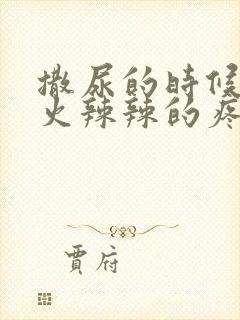 撒尿的時候
火辣辣的疼
賈府